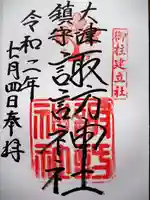 御柱建立社
大津
鎮守
諏訪神社
諏訪神社
令和二年
七月四日奉拝